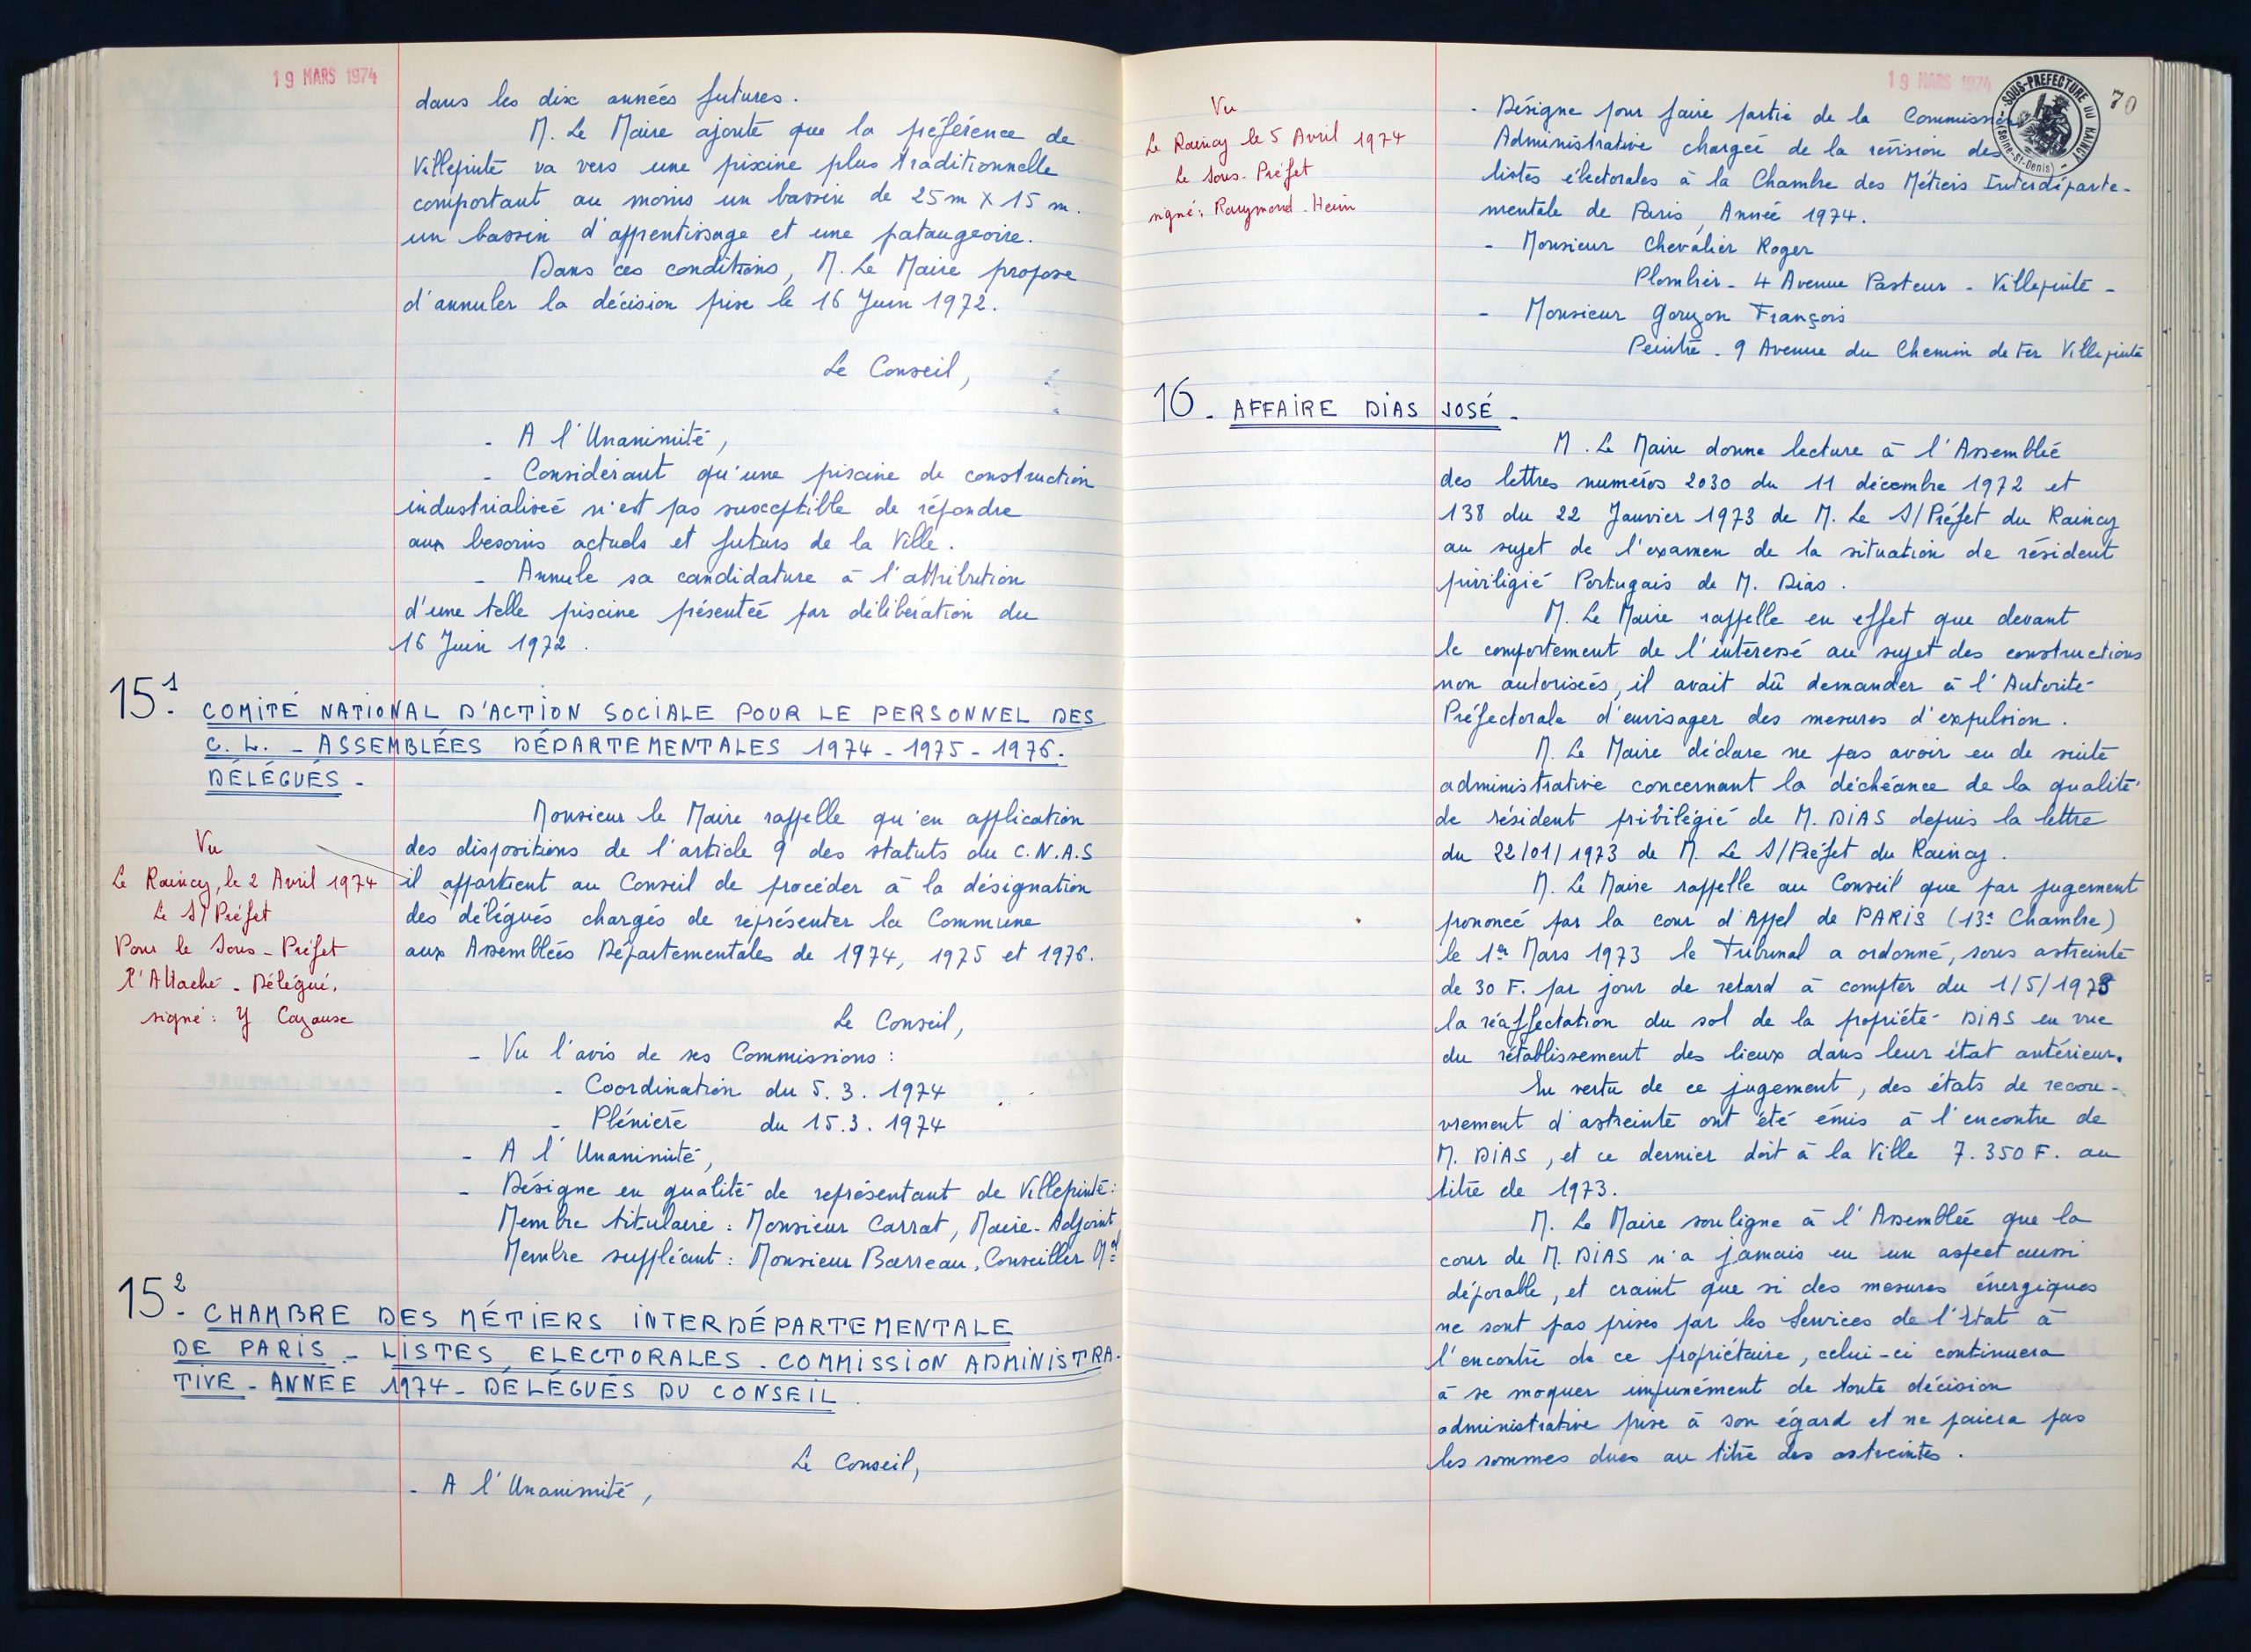 19 MARS 1974
dans les dix années futures.
M. Le Maire ajoute que la préférence de
Villepinte va vers une piscine plus traditionnelle
comportant au moins un bassin de 25 m X 15 m.
un bassin d'apprentissage et une pataugeoire.
Dans ces conditions, M. Le Maire propose
d'annuler la décision prise le 16 Juin 1972.
Le Conseil,
- A l'Unanimité,
- Considérant qu'une piscine de construction
industrialisée n'est pas susceptible de répondre
aux besoins actuels et futurs de la Ville.
- Annule sa candidature à l'attribution
d'une telle piscine présentée par délibération du
16 Juin 1972.
15¹- COMITÉ NATIONAL D'ACTION SOCIALE POUR LE PERSONNEL DES
C. L. - ASSEMBLÉES DÉPARTEMENTALES 1974 - 1975 - 1976.
DÉLÉGUÉS -
Monsieur le Maire rappelle qu'en application
des dispositions de l'article 9 des statuts du C.N.A.S
il appartient au Conseil de procéder à la désignation
des délégués chargés de représenter la Commune
aux Assemblées Départementales de 1974, 1975 et 1976.
Vu
Le Raincy, le 2 Avril 1974
Le S/Préfet
Pour le Sous-Préfet
l'Attaché - Délégué,
signé : Y Cazausc
Le Conseil,
- Vu l'avis de ses Commissions :
- Coordination du 5. 3. 1974
- Plénière du 15. 3. 1974
- A l'Unanimité,
- Désigne en qualité de représentant de Villepinte :
Membre titulaire : Monsieur Carrat, Maire-Adjoint
Membre suppléant : Monsieur Barreau, Conseiller Mal
15²- CHAMBRE DES MÉTIERS INTERDÉPARTEMENTALE
DE PARIS - LISTES ELECTORALES - COMMISSION ADMINISTRA-
TIVE - ANNÉE 1974 - DÉLÉGUÉS DU CONSEIL.
Le Conseil,
- A l'Unanimité,
19 MARS 1974
SOUS-PREFECTURE DU RAINCY
(Seine-St-Denis)
70
Vu
Le Raincy le 5 Avril 1974
Le Sous-Préfet
signé : Raymond-Heim
- Désigne pour faire partie de la Commission
Administrative chargée de la révision des
listes électorales à la Chambre des Métiers Interdéparte-
mentale de Paris, Année 1974.
- Monsieur Chevalier Roger
Plombier - 4 Avenue Pasteur - Villepinte -
- Monsieur Goruzon François
Peintre - 9 Avenue du Chemin de Fer Villepinte
16 - AFFAIRE DIAS JOSÉ -
M. Le Maire donne lecture à l'Assemblée
des lettres numéros 2030 du 11 décembre 1972 et
138 du 22 Janvier 1973 de M. Le S/Préfet du Raincy
au sujet de l'examen de la situation de résident
priviligié Portugais de M. Dias.
M. Le Maire rappelle en effet que devant
le comportement de l'intéressé au sujet des constructions
non autorisées, il avait dû demander à l'Autorité
Préfectorale d'envisager des mesures d'expulsion.
M. Le Maire déclare ne pas avoir eu de suite
administrative concernant la déchéance de la qualité
de résident privilégié de M. DIAS depuis la lettre
du 22/01/1973 de M. Le S/Préfet du Raincy.
M. Le Maire rappelle au Conseil que par jugement
prononcé par la cour d'Appel de PARIS (13e Chambre)
le 1er Mars 1973 le Tribunal a ordonné, sous astreinte
de 30 F. par jour de retard à compter du 1/5/1973
la réaffectation du sol de la propriété DIAS en vue
du rétablissement des lieux dans leur état antérieur.
En vertu de ce jugement, des états de recou-
vrement d'astreinte ont été émis à l'encontre de
M. DIAS, et ce dernier doit à la Ville 7.350 F. au
titre de 1973.
M. Le Maire souligne à l'Assemblée que la
cour de M. DIAS n'a jamais eu un aspect aussi
déporable, et craint que si des mesures énergiques
ne sont pas prises par les Services de l'Etat à
l'encontre de ce propriétaire, celui-ci continuera
à se moquer impunément de toute décision
administrative prise à son égard et ne paiera pas
les sommes dues au titre des astreintes.